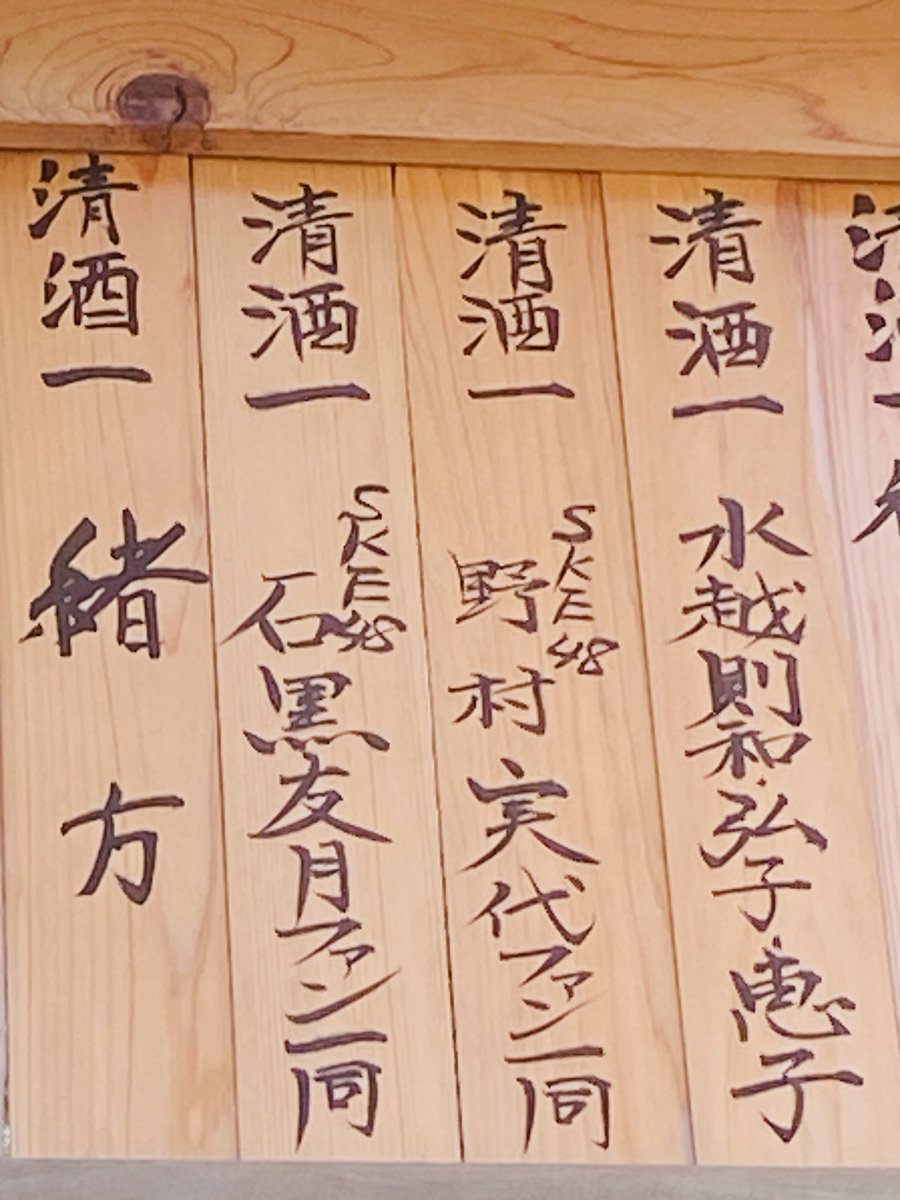 清酒一
清酒一 水越則和・弘子・恵子
清酒一 SKE48 野村実代ファン一同
清酒一 SKE48 石黒友月ファン一同
清酒一 緒方